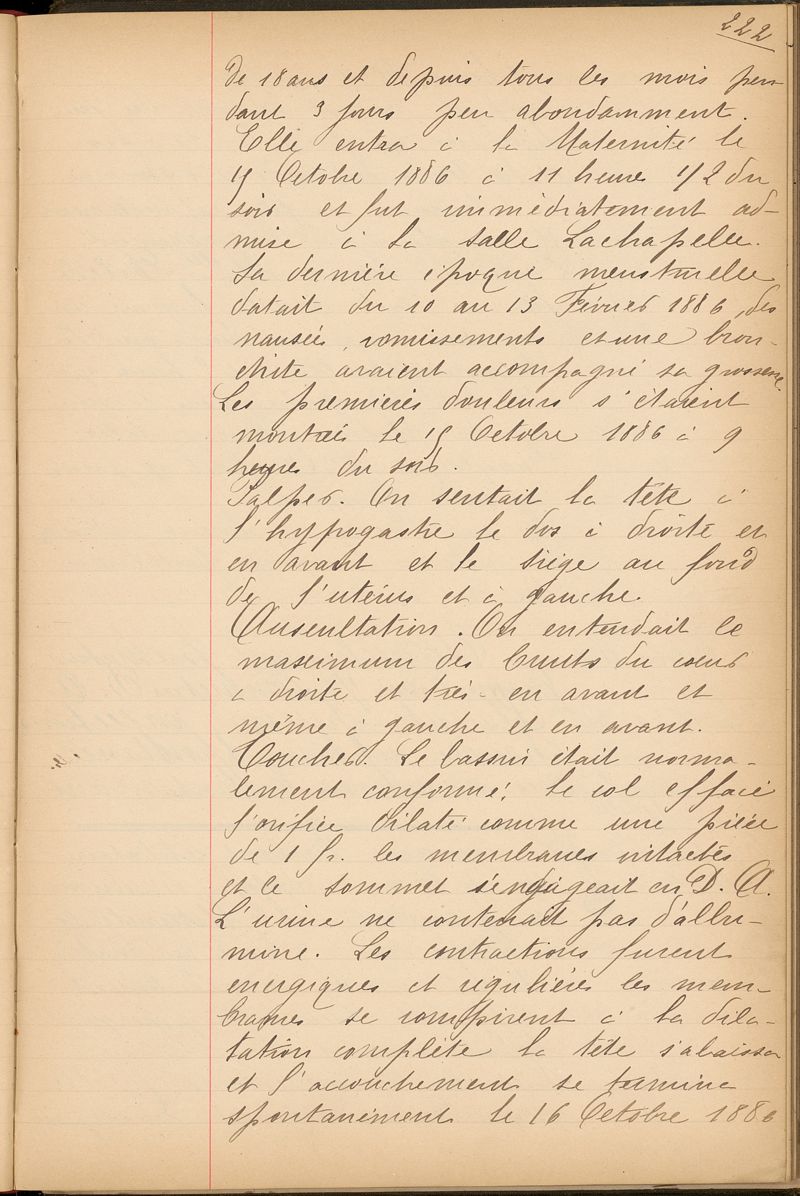 222
de 18 ans et depuis tous les mois pen
dant 3 jours peu abondamment.
Elle entra à la Maternité le
15 Octobre 1886 à 11 heures 1/2 du
soir et fut immédiatement ad-
mise à la salle Lachapelle.
Sa dernière époque menstruelle
datait du 10 au 13 Février 1886, des
nausées, vomissements et une bron-
chite avaient accompagné sa grossesse.
Les premières douleurs s'étaient
montrées le 15 Octobre 1886 à 9
heures du soir.
Palper. On sentait la tête à
l'hypogastre le dos à droite et
en avant et le siège au fond
de l'utérus et à gauche.
Auscultation. On entendait le
maximum des bruits du cœur
à droite et très-en avant et
même à gauche et en avant.
Toucher. Le bassin était norma-
lement conformé; le col effacé
l'orifice dilaté comme une pièce
de 1 fr. les membranes intactes
et le sommet s'engageait en D. A.
L'urine ne contenait pas d'albu-
mine. Les contractions furent
energiques et régulières les mem-
branes se rompirent à la dila-
tation complète la tête s'abaissa
et l'accouchement se termina
spontanément le 16 Octobre 1886